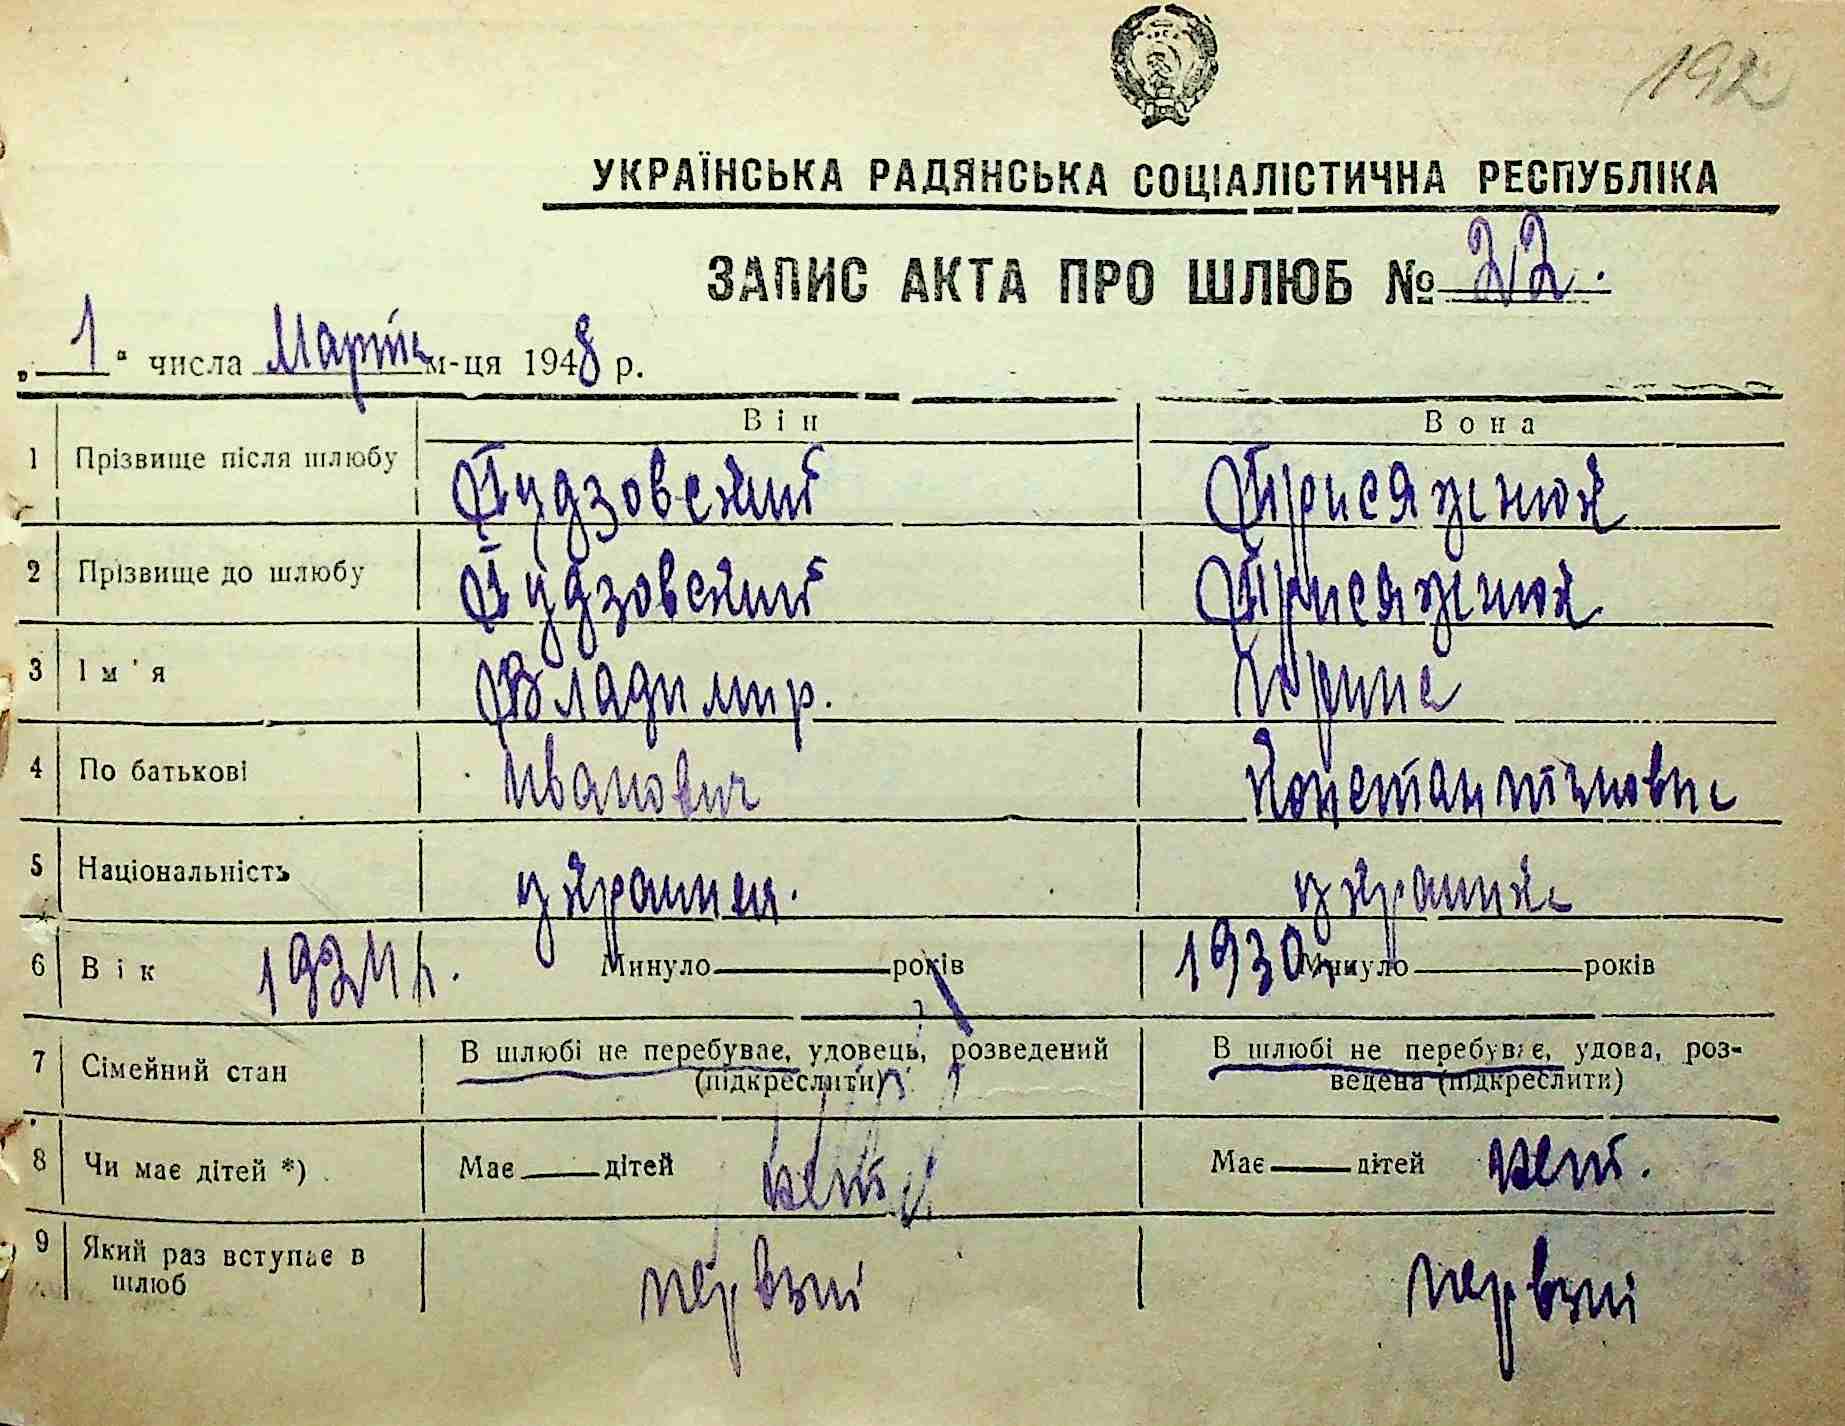 192
УКРАЇНСЬКА РАДЯНСЬКА СОЦІАЛІСТИЧНА РЕСПУБЛІКА
ЗАПИС АКТА ПРО ШЛЮБ № 22.
„1“ числа Марта м-ця 1948 р.
Він Вона
1 Прізвище після шлюбу Пудзовский Присяжнюк
2 Прізвище до шлюбу Пудзовский Присяжнюк
3 Ім'я Владимир.
4 По батькові Иванович Константиновна
5 Національність украинец. украинка
6 Вік 1924 р. Минуло року 1930 Минуло років
7 Сімейний стан В шлюбі не перебуває, удовець, розведений (підкреслити) В шлюбі не перебуває, удова, роз-
ведена (підкреслити)
8 Чи має дітей *) Має дітей нет Має дітей нет.
9 Який раз вступає в первый первый
шлюб